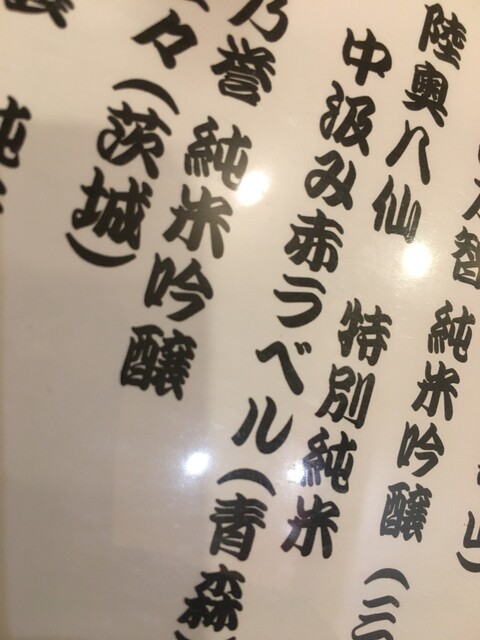 智 純米吟醸 (三
陸奥八仙 特別純米
中汲み赤ラベル(青森)
乃誉 純米吟醸
々(茨城)